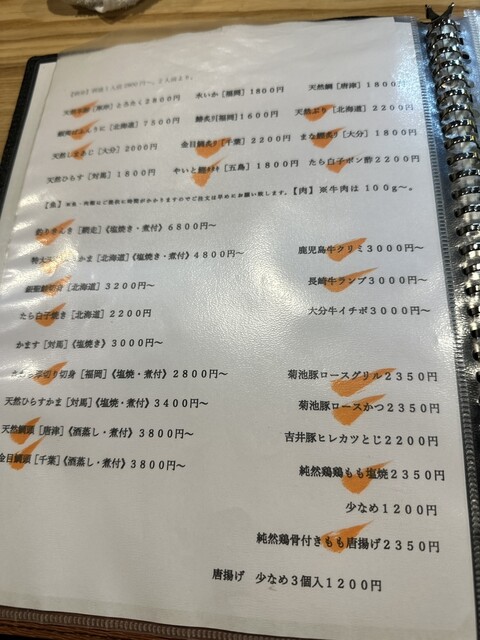 水いか［福岡］１８００円
天然鯛［唐津］１８００円
とろろく２８００円
［北海道］７５００円
鯵炙り［福岡］１６００円
天然ぶり［北海道］２２００円
天然しまあじ［大分］２０００円
金目鯛炙り［千葉］２２００円
まな鰹炙り［大分］１８００円
天然ひらす［対馬］１８００円
やいと鰹タタキ［五島］１８００円
たら白子ポン酢２２００円
【魚】※魚・肉類にご提供に時間がかかりますのでご注文は早めにお願い致します。【肉】※牛肉は１００ｇ〜。
釣りきんき［網走］《塩焼き・煮付》６８００円〜
かま［北海道］《塩焼き・煮付》４８００円〜
［北海道］３２００円〜
たら白子焼き［北海道］２２００円
かます［対馬］《塩焼き》３０００円〜
厚切り切身［福岡］《塩焼・煮付》２８００円〜
天然ひらすかま［対馬］《塩焼・煮付》３４００円〜
天然鯛頭［唐津］《酒蒸し・煮付》３８００円〜
金目鯛頭［千葉］《酒蒸し・煮付》３８００円〜
鹿児島牛クリミ３０００円〜
長崎牛ランプ３０００円〜
大分牛イチボ３０００円〜
菊池豚ロースグリル２３５０円
菊池豚ロースかつ２３５０円
吉井豚ヒレカツとじ２２００円
純然鶏鶏もも塩焼２３５０円
少なめ１２００円
純然鶏骨付きもも唐揚げ２３５０円
唐揚げ　少なめ３個入１２００円